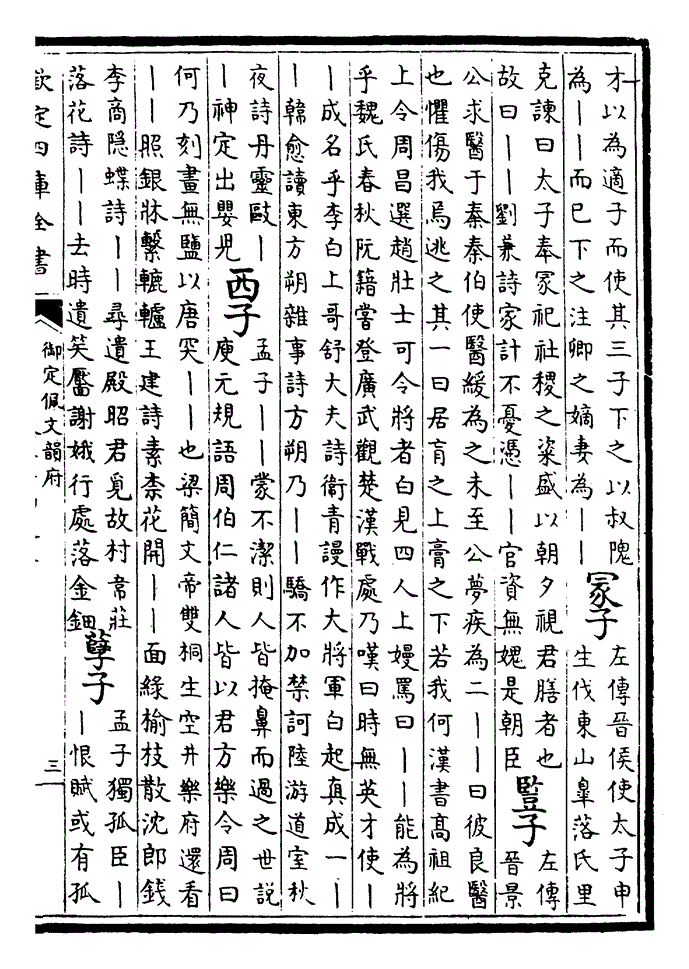 才以為適子而使其三子下之以叔隗
為丨丨而已下之注卿之嫡妻為丨丨
冢子
左傳晉侯使太子申
生伐東山臯落氏里
克諫曰太子奉冢祀社稷之粢盛以朝夕視君膳者也
故曰丨丨劉兼詩家計不憂憑丨丨官資無媿是朝臣
豎子
左傳
晉景
公求醫于秦秦伯使醫緩為之未至公夢疾為二丨丨曰彼良醫
也懼傷我焉逃之其一曰居肓之上膏之下若我何漢書高祖紀
上令周昌選趙壯士可令將者白見四人上嫚罵曰丨丨能為將
乎魏氏春秋阮籍嘗登廣武觀楚漢戰處乃嘆曰時無英才使丨
丨成名乎李白上哥舒大夫詩衞青謾作大將軍白起真成一丨
丨韓愈讀東方朔雜事詩方朔乃丨丨驕不加禁訶陸游道室秋
夜詩丹靈敺丨
丨神定出嬰児
西子
孟子丨丨蒙不潔則人皆掩鼻而過之世説
庾元規語周伯仁諸人皆以君方樂令周曰
何乃刻畫無鹽以唐突丨丨也梁簡文帝雙桐生空井樂府還看
丨丨照銀牀繫轆轤王建詩素柰花開丨丨面綠榆枝散沈郎錢
李商隐蝶詩丨丨尋遺殿昭君覓故村韋莊
落花詩丨丨去時遺笑靨謝娥行處落金鈿
孽子
孟子獨孤臣丨
丨恨賦或有孤
欽定四庫全書
御定佩文韻府
三